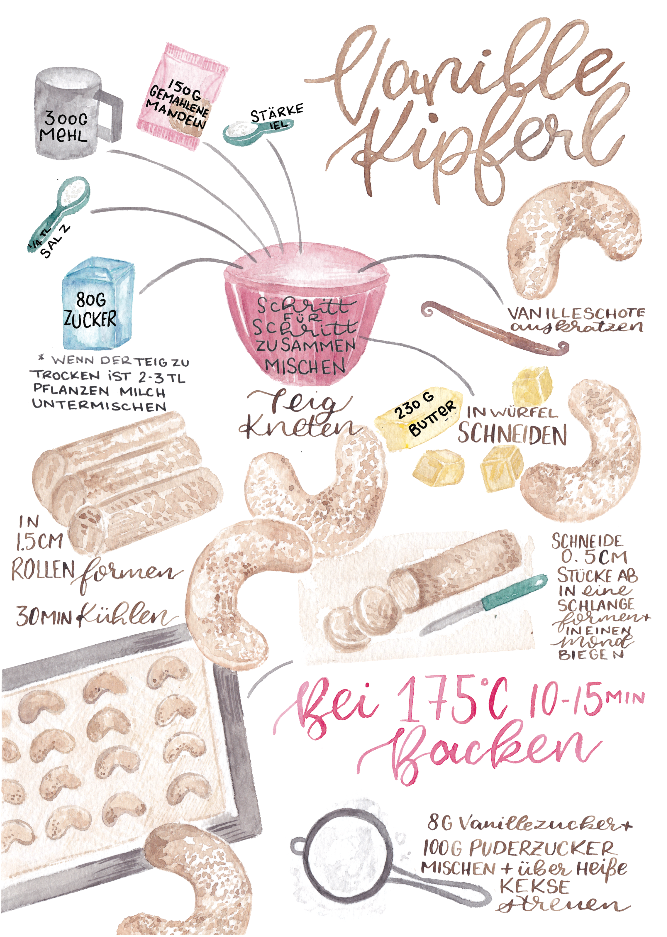 Vanille
Kipferl
300G
MEHL
150G
GEMAHLENE
MANDELN
STÄRKE
1EL
1/4 TL
SALZ
80G
ZUCKER
* WENN DER TEIG ZU
TROCKEN IST 2-3 TL
PFLANZEN MILCH
UNTERMISCHEN
Schritt
FÜR
Schritt
ZUSAMMEN
MISCHEN
VANILLESCHOTE
auskratzen
Teig
Kneten
230 G
BUTTER
IN WÜRFEL
SCHNEIDEN
IN
1.5CM
ROLLEN formen
30MIN Kühlen
SCHNEIDE
0.5CM
STÜCKE AB
IN eine
SCHLANGE
formen+
IN EINEN
mond
BIEGEN
Bei 175°C 10-15MIN
Backen
8G Vanillezucker+
100G PUDERZUCKER
MISCHEN + über Heiße
KEKSE
streuen